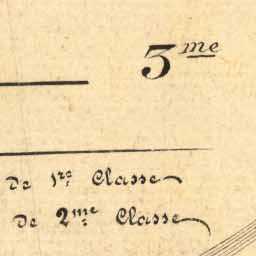 3me
de 1re Classe
de 2me Classe